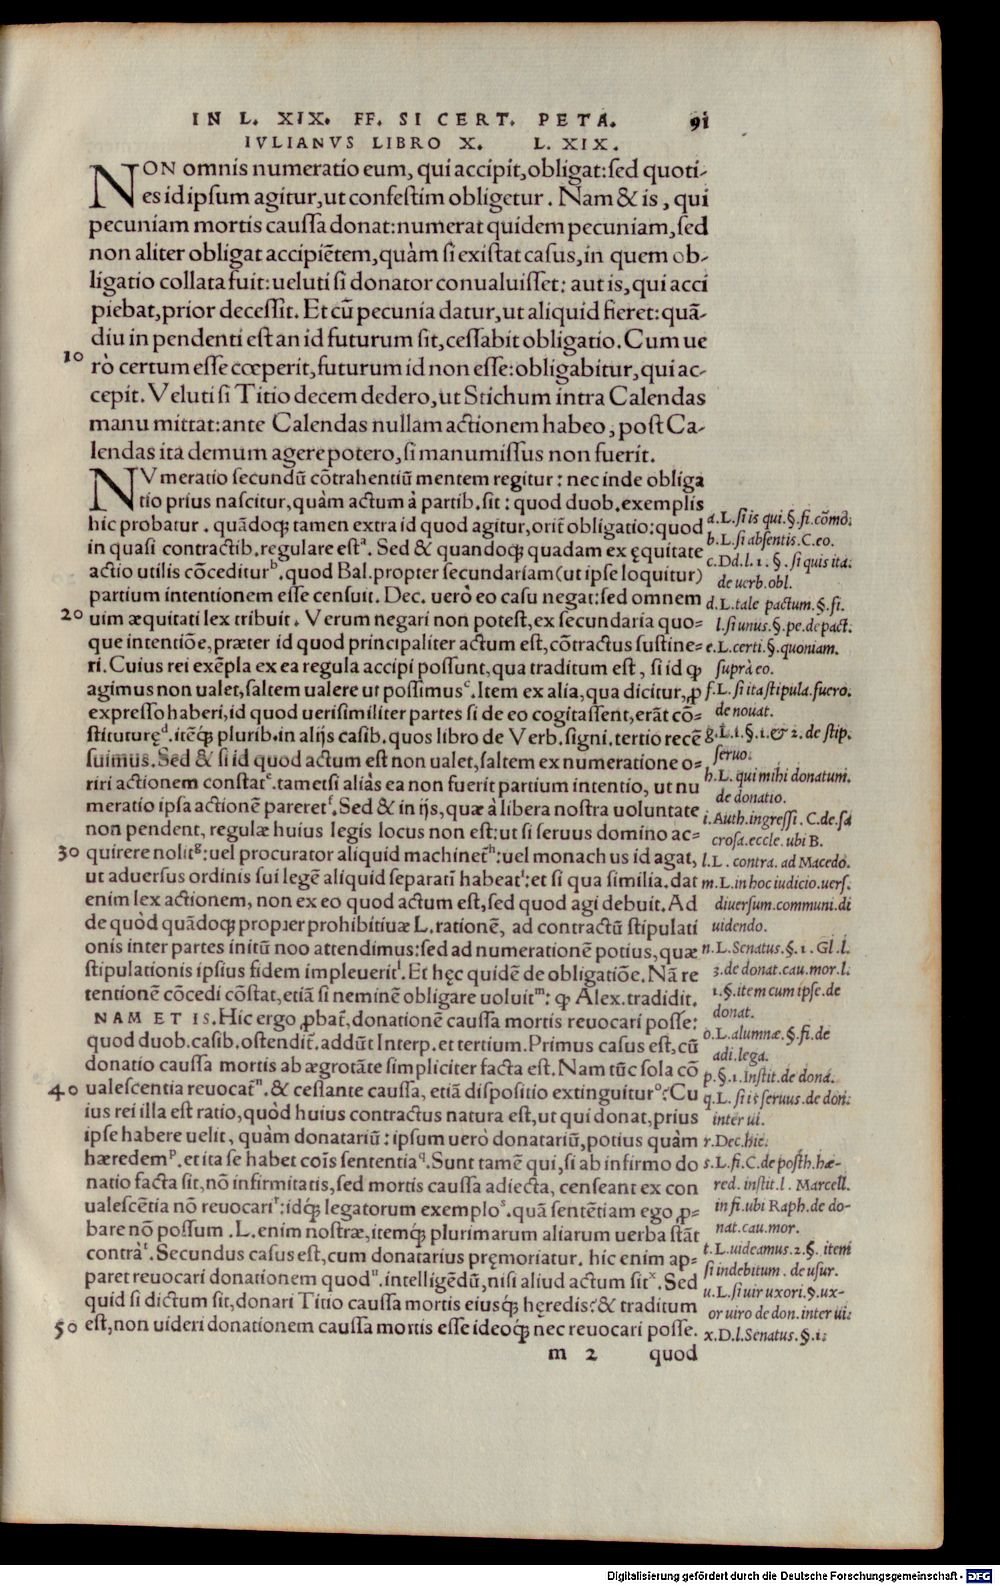 IN L. XIX. FF. SI CERT. PETA. 91
IVLIANVS LIBRO X. L. XIX.
NON omnis numeratio eum, qui accipit, obligat: sed quoti-
es id ipsum agitur, ut confestim obligetur. Nam & is, qui
pecuniam mortis caussa donat: numerat quidem pecuniam, sed
non aliter obligat accipiētem, quàm si existat casus, in quem ob-
ligatio collata fuit: ueluti si donator conualuisset: aut is, qui acci
piebat, prior decessit. Et cū pecunia datur, ut aliquid fieret: quā-
diu in pendenti est an id futurum sit, cessabit obligatio. Cum ue
10 rò certum esse cœperit, futurum id non esse: obligabitur, qui ac-
cepit. Veluti si Titio decem dedero, ut Stichum intra Calendas
manu mittat: ante Calendas nullam actionem habeo, post Ca-
lendas ita demum agere potero, si manumissus non fuerit.
NVmeratio secundū cōtrahentiū mentem regitur: nec inde obliga
tio prius nascitur, quàm actum à partib. sit: quod duob. exemplis
hic probatur. quādoqꝫ tamen extra id quod agitur, orit̄ obligatio: quod
in quasi contractib. regulare est a. Sed & quandoqꝫ quadam ex ęquitate
actio utilis cōceditur b. quod Bal. propter secundariam (ut ipse loquitur)
partium intentionem esse censuit. Dec. uerò eo casu negat: sed omnem
20 uim æquitati lex tribuit. Verum negari non potest, ex secundaria quo=
que intentiōe, præter id quod principaliter actum est, cōtractus sustine=
ri. Cuius rei exēpla ex ea regula accipi possunt, qua traditum est, si id ꝙ
agimus non ualet, saltem ualere ut possimus c. Item ex alia, qua dicitur, ꝓ
expresso haberi, id quod uerisimiliter partes si de eo cogitassent, erāt cō=
stituturę d. itēqꝫ plurib. in alijs casib. quos libro de Verb. signi. tertio recē
suimus. Sed & si id quod actum est non ualet, saltem ex numeratione o=
riri actionem constat e. tametsi aliàs ea non fuerit partium intentio, ut nu
meratio ipsa actionē pareret f. Sed & in ijs, quæ à libera nostra uoluntate
non pendent, regulæ huius legis locus non est: ut si seruus domino ac=
30 quirere nolit g: uel procurator aliquid machinet̄ h: uel monachus id agat,
ut aduersus ordinis sui legē aliquid separatī habeat i: et si qua similia. dat
enim lex actionem, non ex eo quod actum est, sed quod agi debuit. Ad
de quòd quādoqꝫ propter prohibitiuæ L. rationē, ad contractū stipulati
onis inter partes initū noo attendimus: sed ad numerationē potius, quæ
stipulationis ipsius fidem impleuerit l. Et hęc quidē de obligatiōe. Nā re
tentionē cōcedi cōstat, etiā si neminē obligare uoluit m: ꝙ Alex. tradidit.
NAM ET IS. Hic ergo ꝓbat̄, donationē caussa mortis reuocari posse:
quod duob. casib. ostendit̄. addūt Interp. et tertium. Primus casus est, cū
donatio caussa mortis ab ægrotāte simpliciter facta est. Nam tūc sola cō
40 ualescentia reuocat̄ n. & cessante caussa, etiā dispositio extinguitur o: Cu
ius rei illa est ratio, quòd huius contractus natura est, ut qui donat, prius
ipse habere uelit, quàm donatariū: ipsum uerò donatariū, potius quàm
hæredem p. et ita se habet cōis sententia q. Sunt tamē qui, si ab infirmo do
natio facta sit, nō infirmitatis, sed mortis caussa adiecta, censeant ex con
ualescētia nō reuocari r: idqꝫ legatorum exemplo s. quā sentētiam ego ꝓ=
bare nō possum. L. enim nostræ, itemqꝫ plurimarum aliarum uerba stāt
contrà t. Secundus casus est, cum donatarius pręmoriatur. hic enim ap=
paret reuocari donationem quod u. intelligēdū, nisi aliud actum sit x. Sed
quid si dictum sit, donari Titio caussa mortis eiusqꝫ hęredis: & traditum
50 est, non uideri donationem caussa mortis esse ideoqꝫ nec reuocari posse.
m 2 quod
a. L. si is qui. §. fi. cōmo.
b. L. si absentis. C. eo.
c. Dd. l. 1. §. si quis ita.
de uerb. obl.
d. L. tale pactum. §. fi.
l. si unus. §. pe. de pact.
e. L. certi. §. quoniam.
suprà eo.
f. L. si ita stipula. fuero.
de nouat.
g. L. 1. §. 1. & 2. de stip.
seruo.
h. L. qui mihi donatum.
de donatio.
i. Auth. ingressi. C. de sa
crosa. eccle. ubi B.
l. L. contra. ad Macedo.
m. L. in hoc iudicio. uers.
diuersum. communi di
uidendo.
n. L. Senatus. §. 1. Gl. l.
3. de donat. cau. mor. l.
1. §. item cum ipse. de
donat.
o. L. alumnæ. §. fi. de
adi. lega.
p. §. 1. Instit. de dona.
q. L. si is seruus. de don.
inter ui.
r. Dec. hic.
s. L. fi. C. de posth. hæ-
red. instit. l. Marcell.
in fi. ubi Raph. de do-
nat. cau. mor.
t. L. uideamus. 2. §. item
si indebitum. de usur.
u. L. si uir uxori. §. ux-
or uiro de don. inter ui.
x. D. l. Senatus. §. 1.
Digitalisierung gefördert durch die Deutsche Forschungsgemeinschaft - DFG